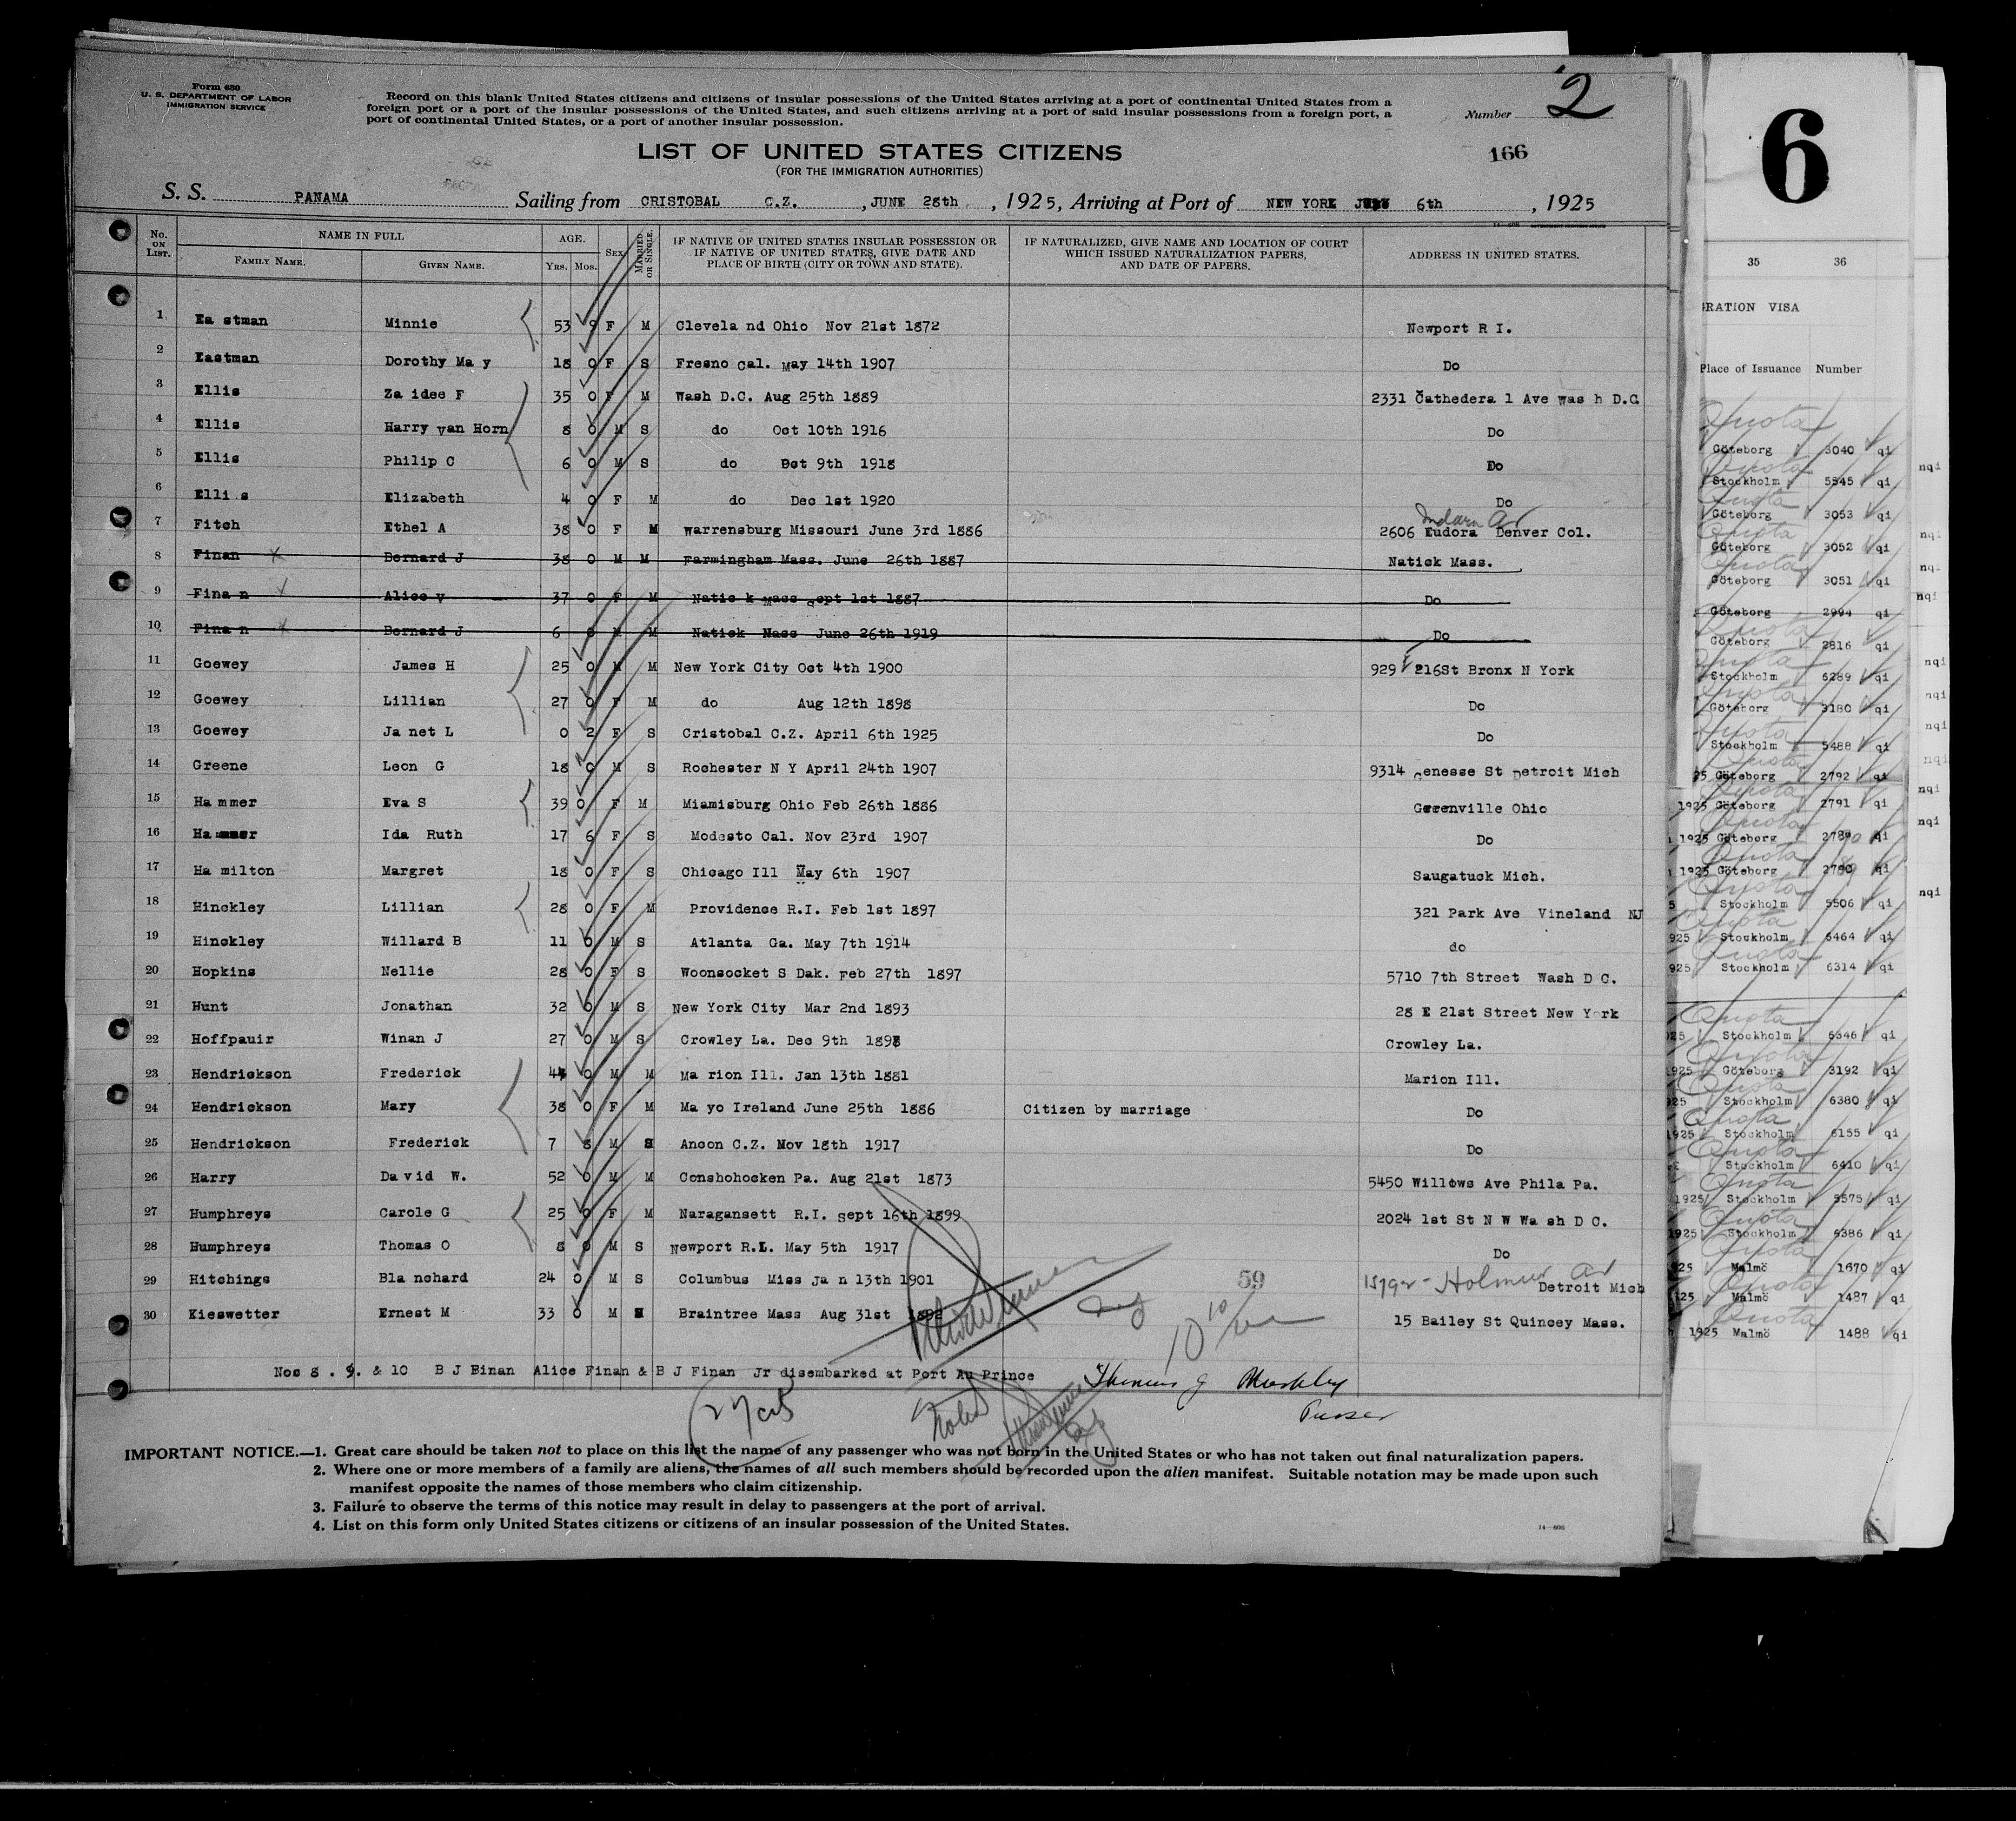 Form 630
U. S. DEPARTMENT OF LABOR
IMMIGRATION SERVICE
Record on this blank United States citizens and citizens of insular possessions of the United States arriving at a port of continental United States from a
foreign port or a port of the insular possessions of the United States, and such citizens arriving at a port of said insular possessions from a foreign port, a
port of continental United States, or a port of another insular possession.
Number 2
LIST OF UNITED STATES CITIZENS
(FOR THE IMMIGRATION AUTHORITIES)
166
S. S. PANAMA Sailing from CRISTOBAL C.Z. , JUNE 28th , 1925, Arriving at Port of NEW YORK 6th , 1925
No. ON LIST. NAME IN FULL FAMILY NAME. GIVEN NAME. AGE. YRS. MOS. SEX MARRIED OR SINGLE. IF NATIVE OF UNITED STATES INSULAR POSSESSION OR IF NATIVE OF UNITED STATES, GIVE DATE AND PLACE OF BIRTH (CITY OR TOWN AND STATE). IF NATURALIZED, GIVE NAME AND LOCATION OF COURT WHICH ISSUED NATURALIZATION PAPERS, AND DATE OF PAPERS. ADDRESS IN UNITED STATES.
1 Ea stman Minnie 53 9 F M Clevela nd Ohio Nov 21st 1872 Newport R I.
2 Eastman Dorothy Ma y 18 0 F S Fresno Cal. May 14th 1907 Do
3 Ellis Za idee F 35 0 F M Wash D.C. Aug 25th 1889 2331 Cathedera l Ave was h D.C
4 Ellis Harry van Horn 8 0 M S do Oct 10th 1916 Do
5 Ellis Philip C 6 0 M S do Oct 9th 1918 Do
6 Elli s Elizabeth 4 0 F M do Dec 1st 1920 Do
7 Fitch Ethel A 38 0 F M warrensburg Missouri June 3rd 1886 2606 Eudora Denver Col.
8 Finan Bernard J 38 0 M M Farmingham Mass. June 26th 1887 Natick Mass.
9 Fina n Alice V 37 0 F M Natic k Mass Sept 1st 1887 Do
10 Fina n Bernard J 6 0 M M Natick Mass June 26th 1919 Do
11 Goewey James H 25 0 M M New York City Oct 4th 1900 929 E 216St Bronx N York
12 Goewey Lillian 27 0 F M do Aug 12th 1898 Do
13 Goewey Ja net L 0 2 F S Cristobal C.Z. April 6th 1925 Do
14 Greene Leon G 18 0 M S Rochester N Y April 24th 1907 9314 Genesse St Detroit Mich
15 Ha mmer Eva S 39 0 F M Miamisburg Ohio Feb 26th 1886 Greenville Ohio
16 Ha mmer Ida Ruth 17 6 F S Modesto Cal. Nov 23rd 1907 Do
17 Ha milton Margret 18 0 F S Chicago Ill May 6th 1907 Saugatuck Mich.
18 Hinckley Lillian 28 0 F M Providence R.I. Feb 1st 1897 321 Park Ave Vineland NJ
19 Hinckley Willard B 11 0 M S Atlanta Ga. May 7th 1914 do
20 Hopkins Nellie 28 0 F S Woonsocket S Dak. Feb 27th 1897 5710 7th Street Wash D C.
21 Hunt Jonathan 32 0 M S New York City Mar 2nd 1893 28 E 21st Street New York
22 Hoffpauir Winan J 27 0 M S Crowley La. Dec 9th 1898 Crowley La.
23 Hendrickson Frederick 44 0 M M Ma rion Ill. Jan 13th 1881 Marion Ill.
24 Hendrickson Mary 38 0 F M Ma yo Ireland June 25th 1886 Citizen by marriage Do
25 Hendrickson Frederick 7 8 M S Ancon C.Z. Nov 18th 1917 Do
26 Harry Da vid W. 52 0 M M Conshohocken Pa. Aug 21st 1873 5450 Willows Ave Phila Pa.
27 Humphreys Carole G 25 0 F M Naragansett R.I. Sept 16th 1899 2024 1st St N W Wa sh D C.
28 Humphreys Thomas O 8 0 M S Newport R.I. May 5th 1917 Do
29 Hitchings Bla nchard 24 0 M S Columbus Miss Ja n 13th 1901 59 Detroit Mich
30 Kieswetter Ernest M 33 0 M Braintree Mass Aug 31st 1892 15 Bailey St Quincey Mass.
Nos 8 . 9. & 10 B J Binan Alice Finan & B J Finan Jr disembarked at Port Au Prince
Purser
Noted
IMPORTANT NOTICE.—1. Great care should be taken not to place on this list the name of any passenger who was not born in the United States or who has not taken out final naturalization papers.
2. Where one or more members of a family are aliens, the names of all such members should be recorded upon the alien manifest. Suitable notation may be made upon such
manifest opposite the names of those members who claim citizenship.
3. Failure to observe the terms of this notice may result in delay to passengers at the port of arrival.
4. List on this form only United States citizens or citizens of an insular possession of the United States.
14—608
6
35 36
GRATION VISA
Place of Issuance Number
Quota
Göteborg 3040 qi
Stockholm 5545 qi nqi
Göteborg 3053 qi
Göteborg 3052 qi nqi
Göteborg 3051 qi nqi
Göteborg 2994 qi nqi
Göteborg 2816 qi
Stockholm 6289 qi nqi
Göteborg 3180 qi nqi
Stockholm 5488 qi nqi
25 Göteborg 2792 qi nqi
1925 Göteborg 2791 qi nqi
1925 Göteborg 2789 qi nqi
1925 Göteborg 2790 qi
Stockholm 5506 qi nqi
925 Stockholm 6464 qi
925 Stockholm 6314 qi
925 Stockholm 6346 qi
1925 Göteborg 3192 qi
925 Stockholm 6380 qi
1925 Stockholm 6155 qi
Stockholm 6410 qi
1925 Stockholm 5575 qi
1925 Stockholm 6386 qi
925 Malmö 1670 qi
925 Malmö 1487 qi
1925 Malmö 1488 qi